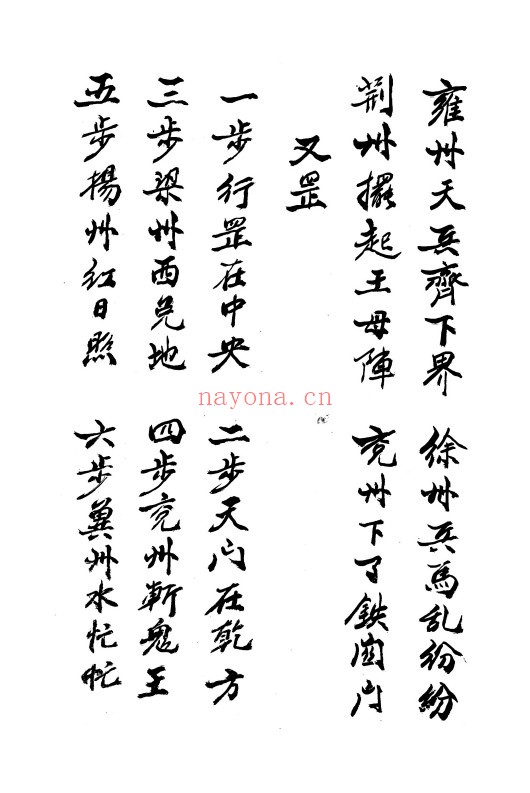 雍州天兵齊下界 徐州兵馬乱纷纷
荆州擺起王母陣 兖州下了鉄関门
又罡
一步行罡在中央 二步天门在乾方
三步梁州西兑地 四步兖州斬鬼王
五步揚州红日照 六步冀州水忙忙
nayona.cn